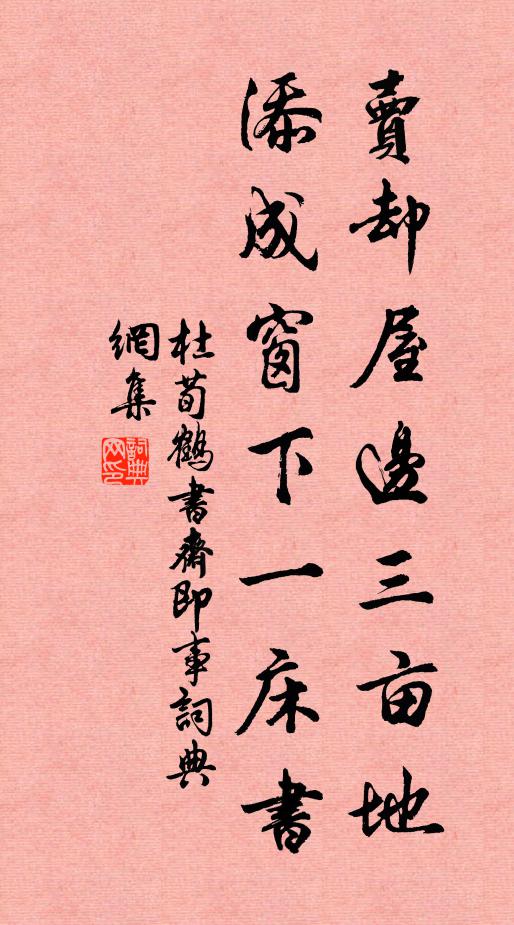 賣却屋邊三亩地
添成窗下一床書
杜荀鶴書齋即事詞典
網集
詞典網印